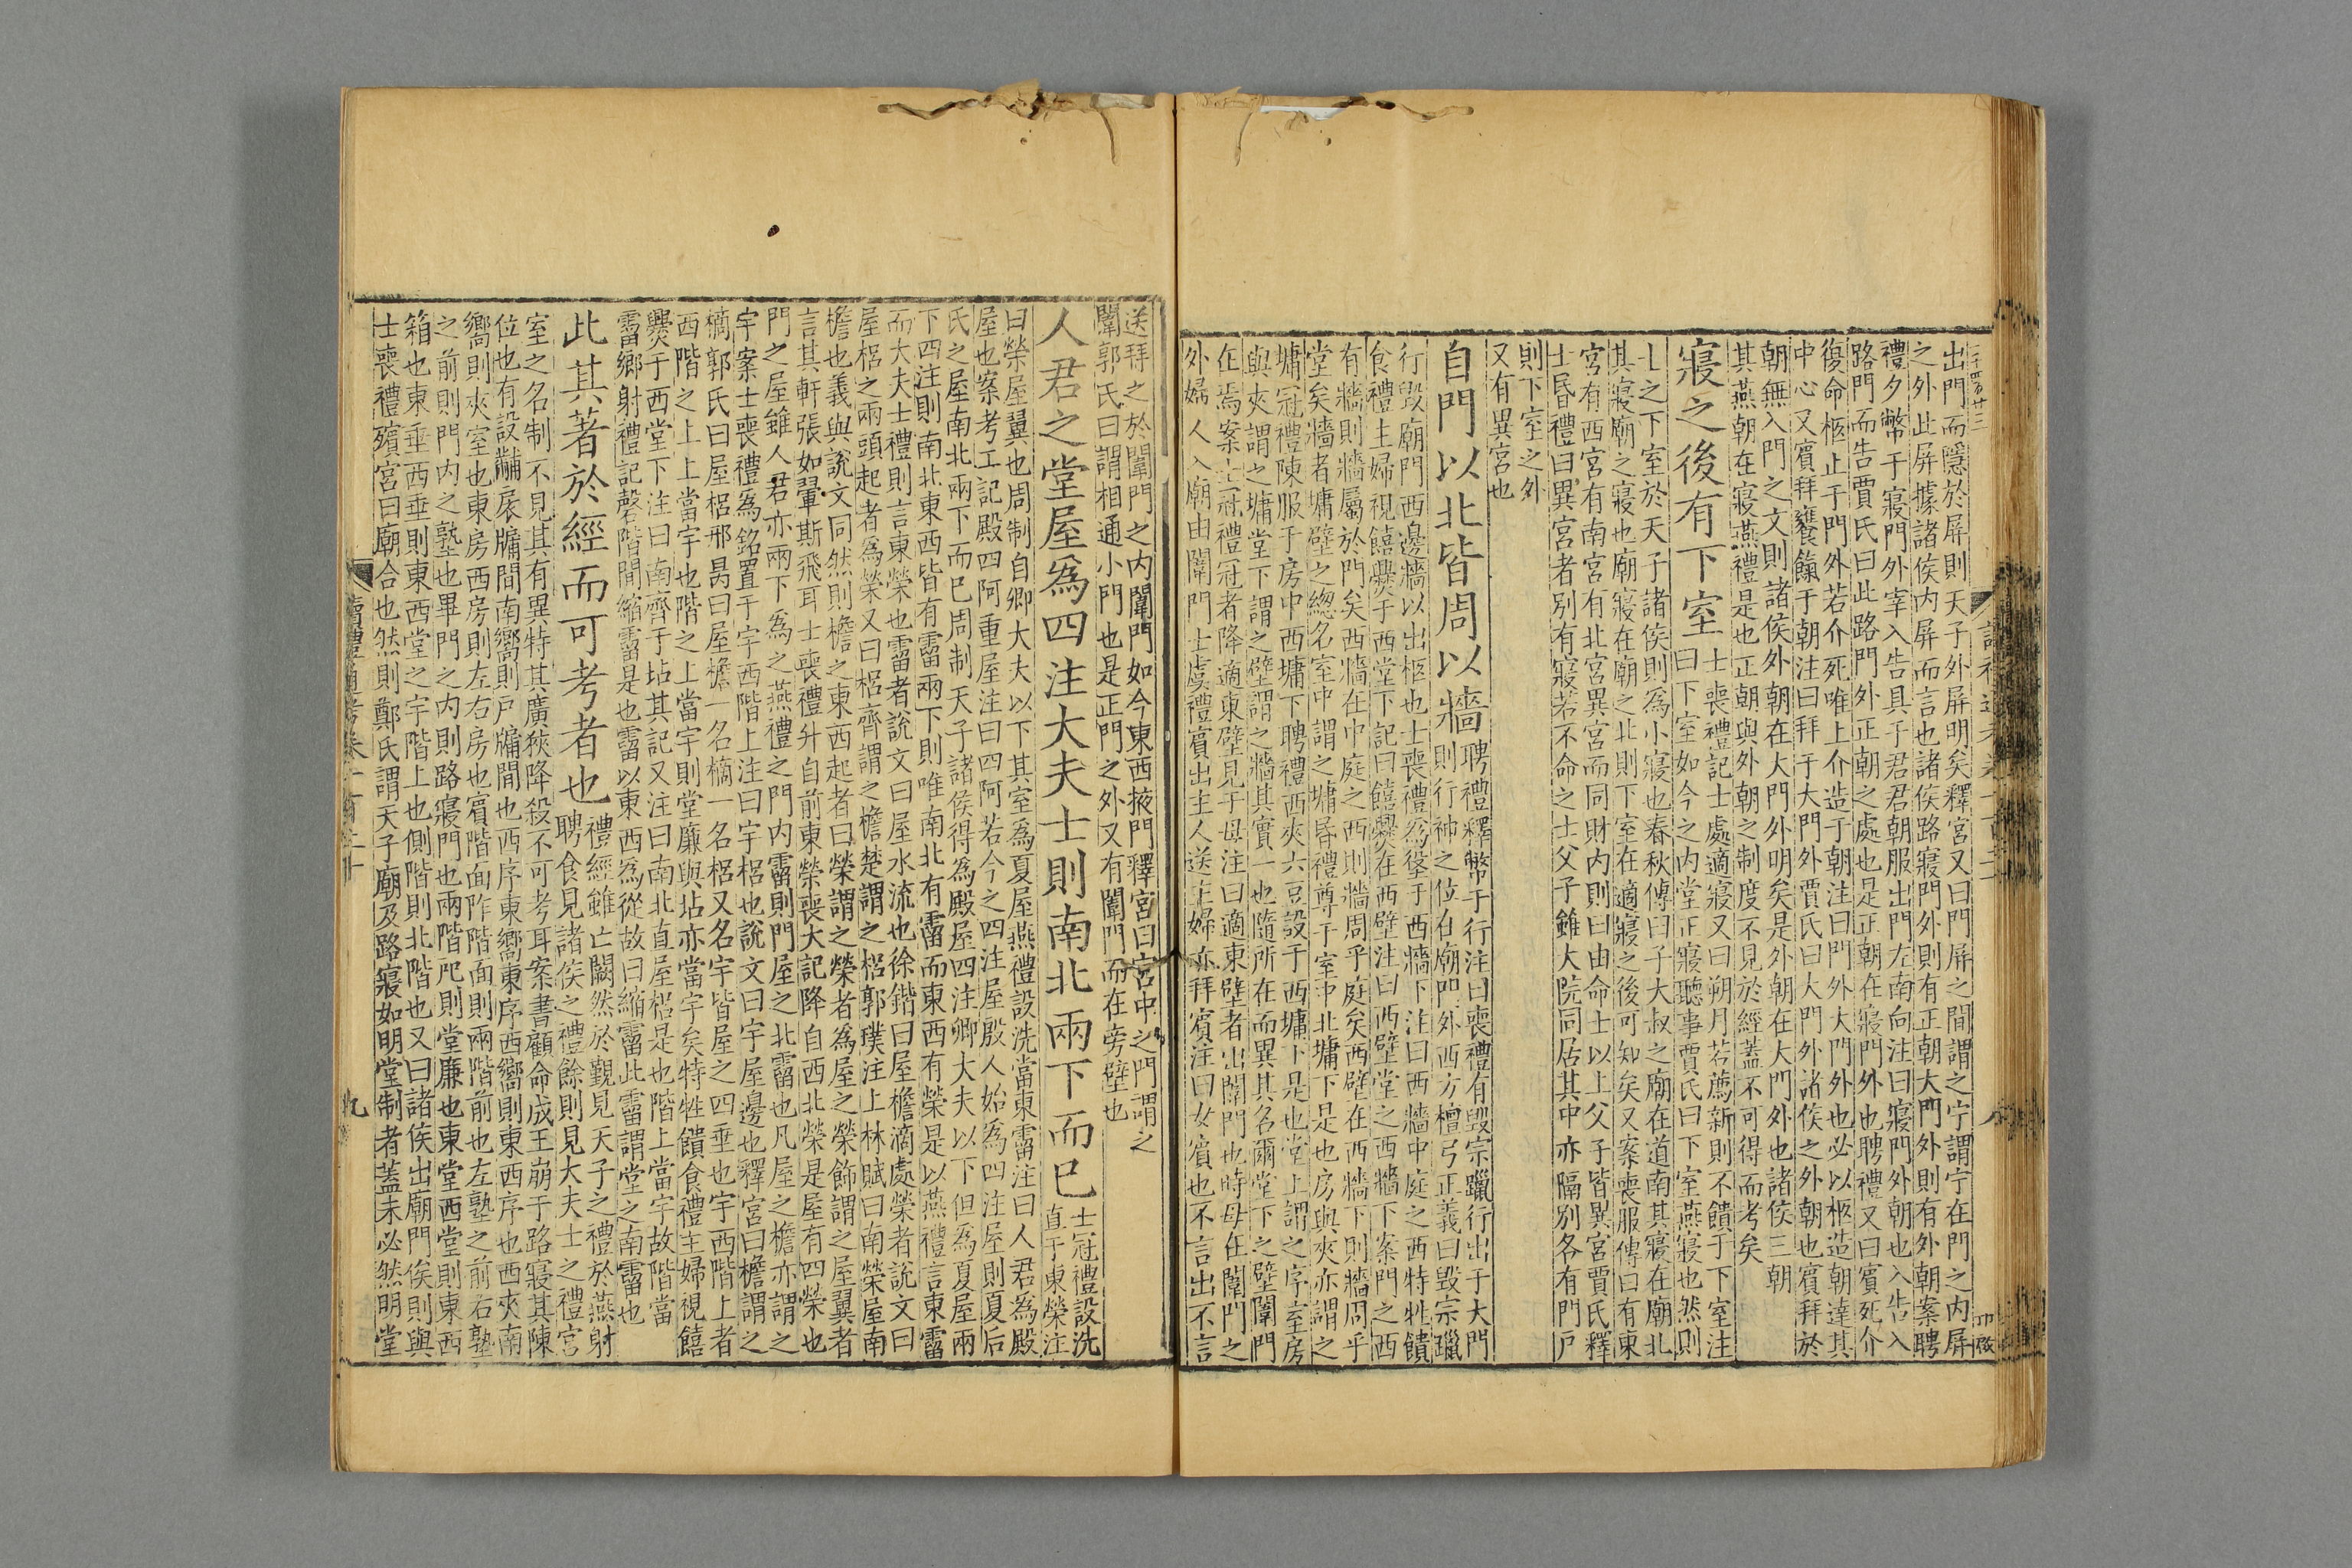 出門而隱於屏則天子外屏明矣釋宮又曰門屏之間謂之宁謂宁在門之內屏
之外此屏據諸侯內屏而言也諸侯路寢門外則有正朝大門外則有外朝案聘
禮夕幣于寢門外宰入告具于君君朝服出門左南向注曰寢門外朝也入告入
路門而告賈氏曰此路門外正朝之處也是正朝在寢門外也聘禮又曰賓死介
復命柩止于門外若介死唯上介造于朝注曰門外大門外也必以柩造朝達其
中心又賓拜饔餼于朝注曰拜于大門外賈氏曰大門外諸侯之外朝也賓拜於
朝無入門之文則諸侯外朝在大門外明矣是外朝在大門外也諸侯三朝
其燕朝在寢燕禮是也正朝與外朝之制度不見於經蓋不可得而考矣
寢之後有下室
士喪禮記士處適寢又曰朔月若薦新則不饋于下室注
曰下室如今之內堂正寢聽事賈氏曰下室燕寢也然則
士之下室於天子諸侯則爲小寢也春秋傳曰子大叔之廟在道南其寢在廟北
其寢廟之寢也廟寢在廟之北則下室在適寢之後可知矣又案喪服傳曰有東
宮有西宮有南宮有北宮異宮而同財內則曰由命士以上父子皆異宮賈氏釋
士昏禮曰異宮者別有寢若不命之士父子雖大院同居其中亦隔別各有門戶
則下室之外
又有異宮也
自門以北皆周以牆
聘禮釋幣于行注曰喪禮有毀宗躐行出于大門
則行神之位在廟門外西方檀弓正義曰毀宗躐
行毀廟門西邊牆以出柩也士喪禮爲垼于西牆下注曰西牆中庭之西特牲饋
食禮主婦視饎爨于西堂下記曰饎爨在西壁注曰西壁堂之西牆下案門之西
有牆則牆屬於門矣西牆在中庭之西則牆周乎庭矣西壁在西牆下則牆周乎
堂矣牆者墉壁之總名室中謂之墉昏禮尊于室中北墉下是也房與夾亦謂之
墉冠禮陳服于房中西墉下聘禮西夾六豆設于西墉下是也堂上謂之序室房
與夾謂之墉堂下謂之壁謂之牆其實一也隨所在而異其名爾堂下之壁闈門
在焉案士冠禮冠者降適東壁見于母注曰適東壁者出闈門也時母在闈門之
外婦人入廟由闈門士虞禮賓出主人送主婦亦拜賓注曰女賓也不言出不言
送拜之於闈門之內闈門如今東西掖門釋宮曰宮中之門謂之
闈郭氏曰謂相通小門也是正門之外又有闈門而在旁壁也
人君之堂屋爲四注大夫士則南北兩下而已
士冠禮設洗
直于東榮注
曰榮屋翼也周制自卿大夫以下其室爲夏屋燕禮設洗當東霤注曰人君爲殿
屋也案考工記殿四阿重屋注曰四阿若今之四注屋殷人始爲四注屋則夏后
氏之屋南北兩下而已周制天子諸侯得爲殿屋四注卿大夫以下但爲夏屋兩
下四注則南北東西皆有霤兩下則唯南北有霤而東西有榮是以燕禮言東霤
而大夫士禮則言東榮也霤者說文曰屋水流也徐鍇曰屋檐滴處榮者說文曰
屋梠之兩頭起者爲榮又曰梠齊謂之檐楚謂之梠郭璞注上林賦曰南榮屋南
檐也義與說文同然則檐之東西起者曰榮謂之榮者爲屋之榮飾謂之屋翼者
言其軒張如翬斯飛耳士喪禮升自前東榮喪大記降自西北榮是屋有四榮也
門之屋雖人君亦兩下爲之燕禮之門內霤則門屋之北霤也凡屋之檐亦謂之
宇案士喪禮爲銘置于宇西階上注曰宇梠也說文曰宇屋邊也釋宮曰檐謂之
樀郭氏曰屋梠邢昺曰屋檐一名樀一名梠又名宇皆屋之四垂也宇西階上者
西階之上上當宇也階之上當宇則堂廉與坫亦當宇矣特牲饋食禮主婦視饎
爨于西堂下注曰南齊于坫其記又注曰南北直屋梠是也階上當宇故階當
霤鄉射禮記磬階間縮霤是也霤以東西爲從故曰縮霤此霤謂堂之南霤也
此其著於經而可考者也
禮經雖亡闕然於覲見天子之禮於燕射
聘食見諸侯之禮餘則見大夫士之禮宮
室之名制不見其有異特其廣狹降殺不可考耳案書顧命成王崩于路寢其陳
位也有設黼扆牖間南嚮則戶牖間也西序東嚮東序西嚮則東西序也西夾南
嚮則夾室也東房西房則左右房也賓階面阼階面則兩階前也左塾之前右塾
之前則門內之塾也畢門之內則路寢門也兩階戺則堂廉也東堂西堂則東西
箱也東垂西垂則東西堂之宇階上也側階則北階也又曰諸侯出廟門俟則與
士喪禮殯宮曰廟合也然則鄭氏謂天子廟及路寢如明堂制者蓋未必然明堂
讀禮通考卷一百二十
九